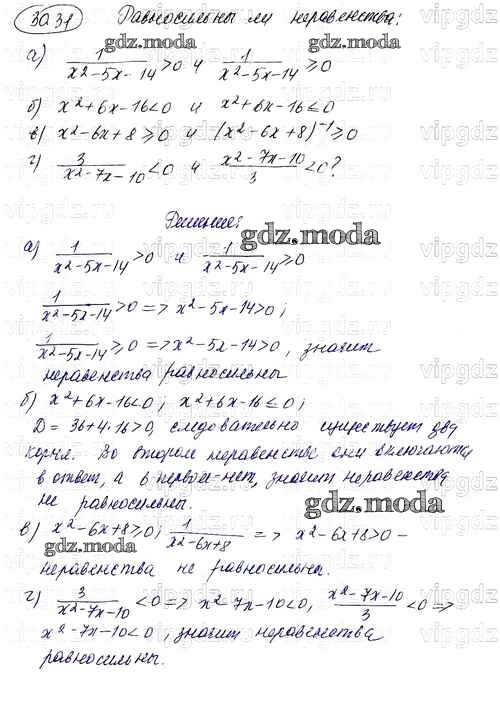 30.31 Равносильны ли неравенства:
gdz.moda gdz.moda
а) 1/(x²-5x-14) >0 и 1/(x²-5x-14) ≥0
б) x²+6x-16<0 и x²+6x-16≤0
в) x²-6x+8≥0 и (x²-6x+8)⁻¹≥0
г) 3/(x²-7x-10) <0 и (x²-7x-10)/3 <0?
Решение:
gdz.moda
а) 1/(x²-5x-14) >0 и 1/(x²-5x-14) ≥0
1/(x²-5x-14) >0 => x²-5x-14>0;
1/(x²-5x-14) ≥0 => x²-5x-14>0, значит
неравенства равносильны
б) x²+6x-16<0; x²+6x-16≤0;
D=36+4·16>0, следовательно существует два
корня. Во втором неравенстве они включаются
в ответ, а в первом-нет, значит неравенства
не равносильны.
gdz.moda
в) x²-6x+8≥0; 1/(x²-6x+8) => x²-6x+8>0 –
gdz.moda
неравенства не равносильны.
г) 3/(x²-7x-10) <0 => x²-7x-10<0, (x²-7x-10)/3 <0 =>
x²-7x-10<0, значит неравенства
равносильны.
vipgdz.ru